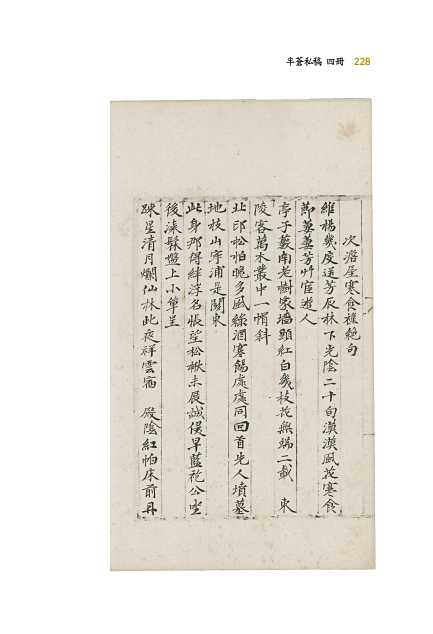 半蒼私稿 四冊 228
次澹屋寒食雜絕句
維楊幾度送芳辰林下光陰二十旬漠漠風花寒食
節萋萋芳艸宦遊人
亭子藪南老樹家墻頭紅白幾枝花無端二載 東
陵客萬木叢中一帽斜
北邙松柏晩多風絲酒寒餳處處同回首先人墳墓
地枝山宇浦是關東
此身那得絆浮名悵望松楸未展誠僾早藍袍公坐
後滾髮盤上小箄呈
踈星清月爛仙林此夜祥雲宿 殿陰紅帕床前丹